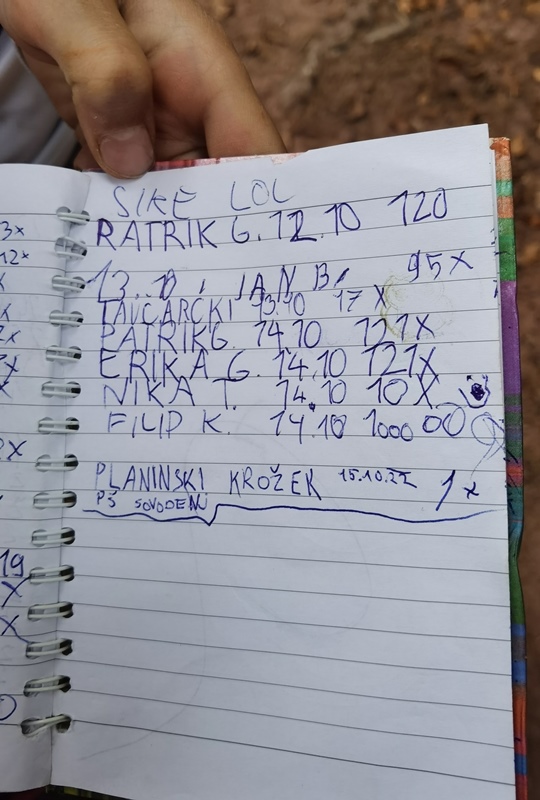 SIKE LOL
PATRIK G. 12.10 120
13.10. JAN B. 95X
TAVČARČKI 13.10 17X
PATRIK G. 14.10 121X
ERIKA G. 14.10 121X
NIKA T. 14.10 10X
FILIP K. 14.10 1000 00
PLANINSKI KROŽEK 15.10.22 1x
PŠ SOVODENJ
3x
12x
x
x
2x
x
x
x
19
x
x